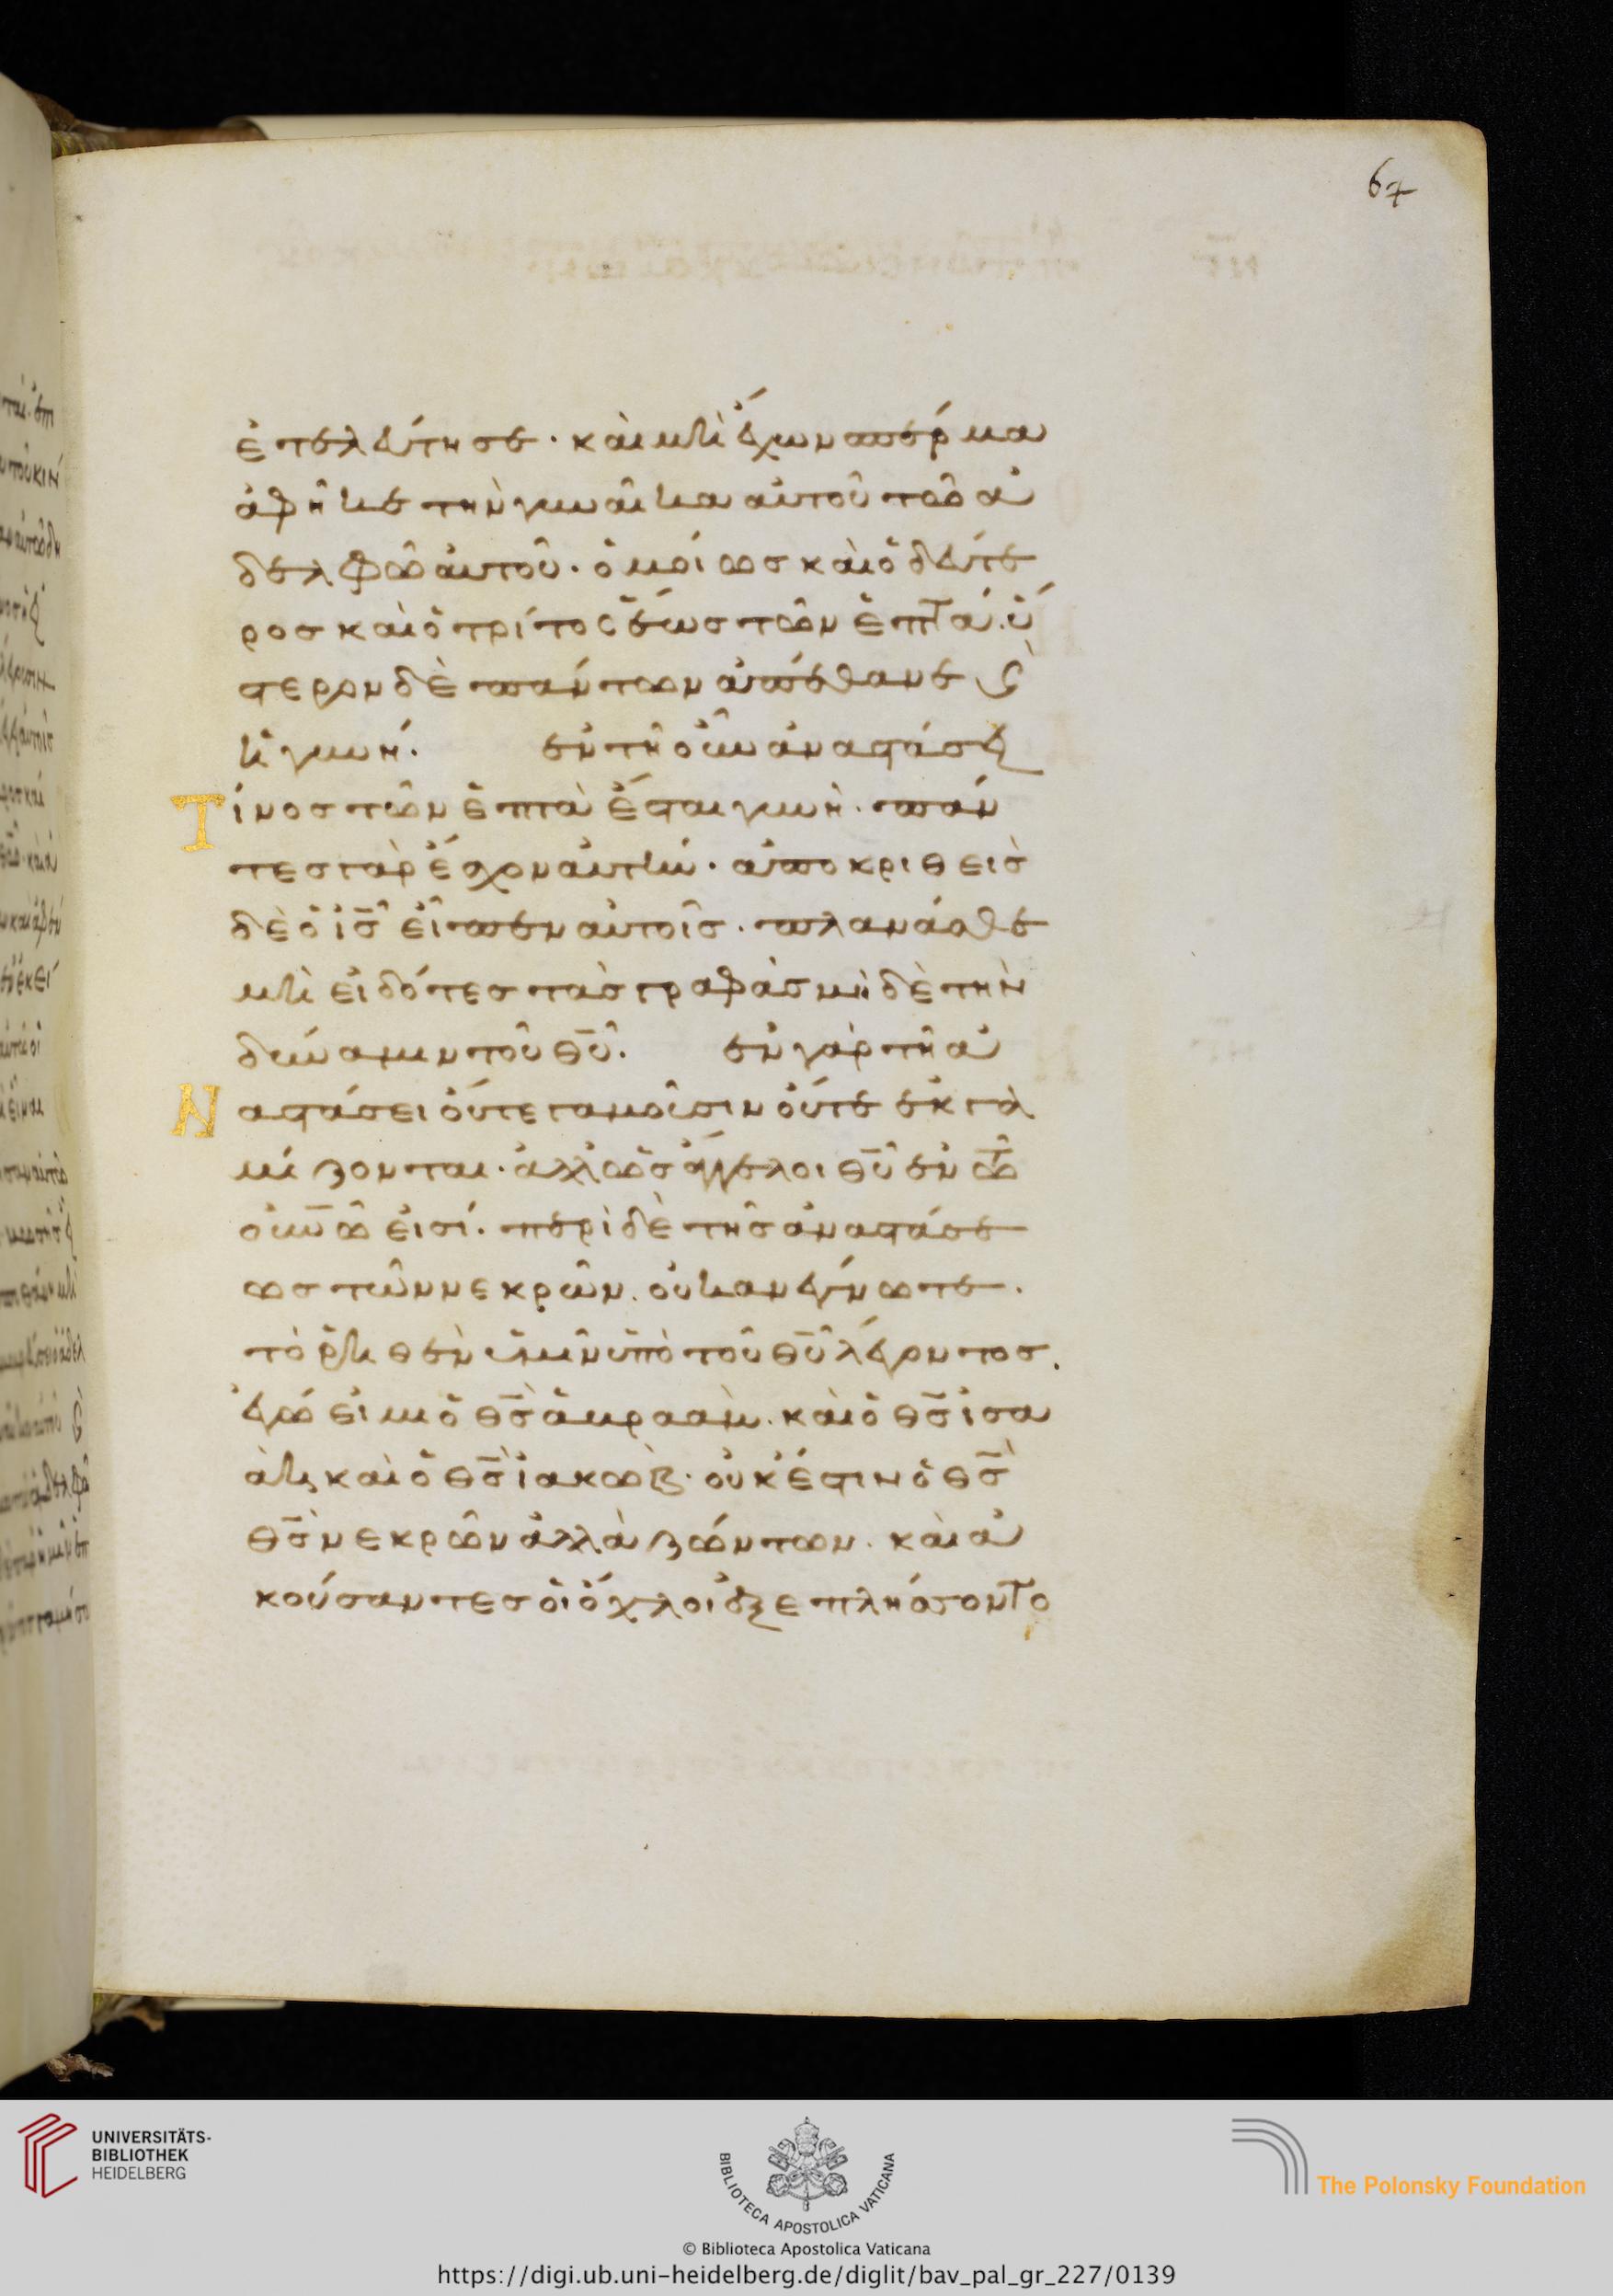 67
ἐτελεύτησε· καὶ μὴ ἔχων σπέρμα
ἀφῆκε τὴν γυναῖκα αὐτοῦ τῶ ἀ
δελφῶ αὐτοῦ· ὁμοίως καὶ ὁ δεύτε
ρος καὶ ὁ τρίτος ἕως τῶν ἑπτά· ὕ
στερον δὲ πάντων ἀπέθανε ϗ̀
ἡ γυνή. ἐν τῆ οὖν ἀναστάσει
Τίνος τῶν ἑπτὰ ἔσται γυνή· πάν
τες γὰρ ἔσχον αὐτήν· ἀποκριθεὶς
δὲ ὁ ἰ̅ς̅ εἶπεν αὐτοῖς· πλανᾶσθε
μὴ εἰδότες τὰς γραφὰς μηδὲ τὴν
δύναμιν τοῦ θ̅υ̅. ἐν γὰρ τῆ ἀ
Ναστάσει οὔτε γαμοῦσιν οὔτε ἐκγα
μίζονται· ἀλλ' ὡς ἄγγελοι θ̅υ̅ ἐν τῶ
οὐ̅νῶ εἰσί· περὶ δὲ τῆς ἀναστάσε
ως τῶν νεκρῶν. οὐκ ἀνέγνωτε·
τὸ ῥηθὲν ὑμῖν ὑπὸ τοῦ θ̅υ̅ λέγοντος.
ἐγώ εἰμι ὁ θ̅ς̅ ἁβραὰμ· καὶ ὁ θ̅ς̅ ἰσα
ὰκ καὶ ὁ θ̅ς̅ ἰακώβ· οὐκ ἔστιν ὁ θ̅ς̅
θ̅ς̅ νεκρῶν ἀλλὰ ζώντων· καὶ ἀ
κούσαντες οἱ ὄχλοι ἐξεπλήσσοντο
UNIVERSITÄTS-
BIBLIOTHEK
HEIDELBERG
BIBLIOTECA APOSTOLICA VATICANA
The Polonsky Foundation
© Biblioteca Apostolica Vaticana
https://digi.ub.uni-heidelberg.de/diglit/bav_pal_gr_227/0139